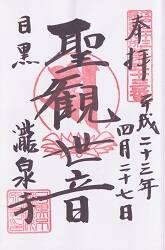 奉拝
平成二十三年
四月二十七日
聖観世音
目黒
瀧泉寺